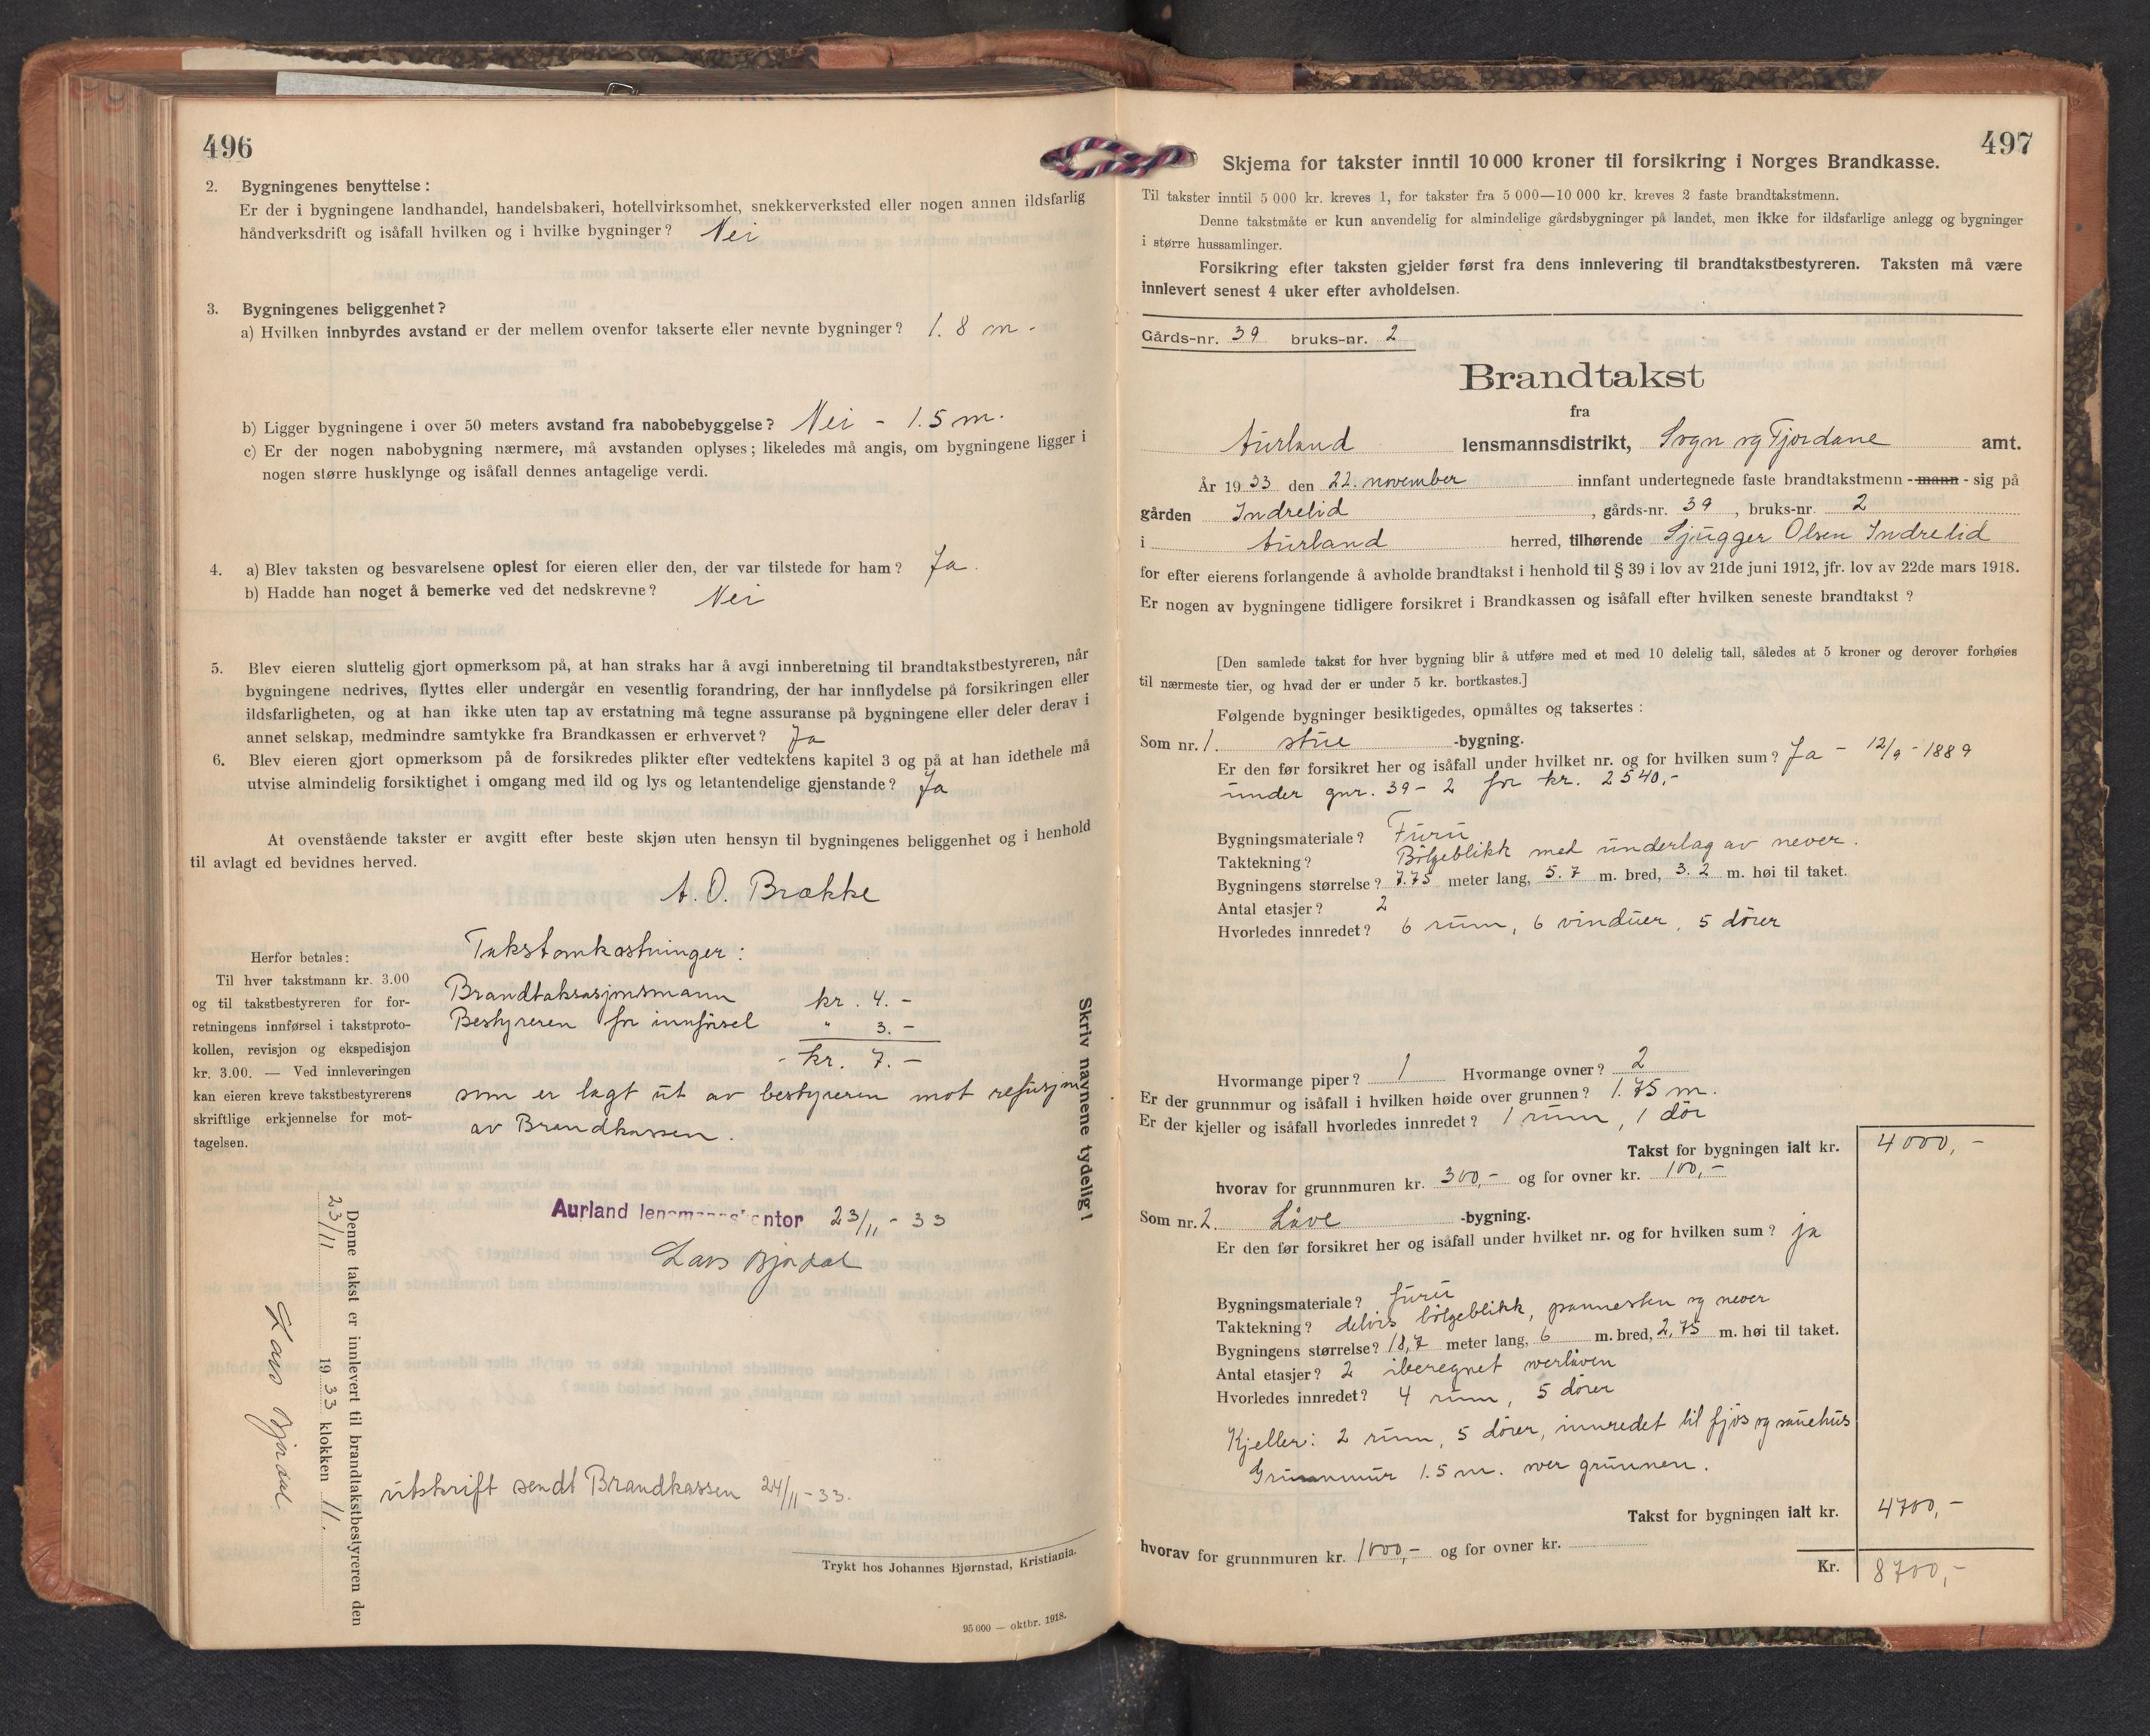 496
2. Bygningenes benyttelse:
Er der i bygningene landhandel, handelsbakeri, hotellvirksomhet, snekkerverksted eller nogen annen ildsfarlig
håndverksdrift og isåfall hvilken og i hvilke bygninger? Nei
3. Bygningenes beliggenhet?
a) Hvilken innbyrdes avstand er der mellem ovenfor takserte eller nevnte bygninger? 1.8 m -
b) Ligger bygningene i over 50 meters avstand fra nabobebyggelse? Nei - 1.5 m.
c) Er der nogen nabobygning nærmere, må avstanden oplyses; likeledes må angis, om bygningene ligger i
nogen større husklynge og isåfall dennes antagelige verdi.
4. a) Blev taksten og besvarelsene oplest for eieren eller den, der var tilstede for ham? Ja.
b) Hadde han noget å bemerke ved det nedskrevne? Nei
5. Blev eieren sluttelig gjort opmerksom på, at han straks har å avgi innberetning til brandtakstbestyreren, når
bygningene nedrives, flyttes eller undergår en vesentlig forandring, der har innflydelse på forsikringen eller
ildsfarligheten, og at han ikke uten tap av erstatning må tegne assuranse på bygningene eller deler derav i
annet selskap, medmindre samtykke fra Brandkassen er erhvervet? Ja
6. Blev eieren gjort opmerksom på de forsikredes plikter efter vedtektens kapitel 3 og på at han idethele må
utvise almindelig forsiktighet i omgang med ild og lys og letantendelige gjenstande? Ja
At ovenstående takster er avgitt efter beste skjøn uten hensyn til bygningenes beliggenhet og i henhold
til avlagt ed bevidnes herved.
A. O. Brække
Herfor betales:
Til hver takstmann kr. 3.00
og til takstbestyreren for for-
retningens innførsel i takstproto-
kollen, revisjon og ekspedisjon
kr. 3.00. — Ved innleveringen
kan eieren kreve takstbestyrerens
skriftlige erkjennelse for mot-
tagelsen.
Takstomkostninger:
Brandtaksasjonsmann kr. 4.-
Bestyreren for innførsel " 3.-
- kr. 7.-
som er lagt ut av bestyreren mot refusjon
av Brandkassen.
Skriv navnene tydelig!
Aurland lensmannskontor 23/11 - 33
Lars Bjørdal
Denne takst er innlevert til brandtakstbestyreren den
23/11 1933 klokken 11.
Lars Bjørdal
utskrift sendt Brandkassen 24/11 - 33.
Trykt hos Johannes Bjørnstad, Kristiania.
95 000 — oktbr. 1918.
497
Skjema for takster inntil 10 000 kroner til forsikring i Norges Brandkasse.
Til takster inntil 5 000 kr. kreves 1, for takster fra 5 000—10 000 kr. kreves 2 faste brandtakstmenn.
Denne takstmåte er kun anvendelig for almindelige gårdsbygninger på landet, men ikke for ildsfarlige anlegg og bygninger
i større hussamlinger.
Forsikring efter taksten gjelder først fra dens innlevering til brandtakstbestyreren. Taksten må være
innlevert senest 4 uker efter avholdelsen.
Gårds-nr. 39 bruks-nr. 2
Brandtakst
fra
Aurland lensmannsdistrikt, Sogn og Fjordane amt.
År 1933 den 22. november innfant undertegnede faste brandtakstmenn - mann - sig på
gården Indrelid, gårds-nr. 39, bruks-nr. 2
i Aurland herred, tilhørende Sjugger Olsen Indrelid
for efter eierens forlangende å avholde brandtakst i henhold til § 39 i lov av 21de juni 1912, jfr. lov av 22de mars 1918.
Er nogen av bygningene tidligere forsikret i Brandkassen og isåfall efter hvilken seneste brandtakst?
[Den samlede takst for hver bygning blir å utføre med et med 10 delelig tall, således at 5 kroner og derover forhøies
til nærmeste tier, og hvad der er under 5 kr. bortkastes.]
Følgende bygninger besiktigedes, opmåltes og taksertes:
Som nr. 1. stue -bygning.
Er den før forsikret her og isåfall under hvilket nr. og for hvilken sum? Ja - 12/9 - 1889
under gnr. 39 - 2 for kr. 2540,-
Bygningsmateriale? Furu
Taktekning? Bölgeblikk med underlag av never.
Bygningens størrelse? 7.75 meter lang, 5.7 m. bred, 3.2 m. høi til taket.
Antal etasjer? 2
Hvorledes innredet? 6 rum, 6 vinduer, 5 dører
Hvormange piper? 1 Hvormange ovner? 2
Er der grunnmur og isåfall i hvilken høide over grunnen? 1.75 m.
Er der kjeller og isåfall hvorledes innredet? 1 rum, 1 dör
Takst for bygningen ialt kr. 4000,-
hvorav for grunnmuren kr. 300,- og for ovner kr. 100,-
Som nr. 2. Låve -bygning.
Er den før forsikret her og isåfall under hvilket nr. og for hvilken sum? ja
Bygningsmateriale? furu
Taktekning? delvis bölgeblikk, pannesten og never
Bygningens størrelse? 18,7 meter lang, 6 m. bred, 2,75 m. høi til taket.
Antal etasjer? 2 iberegnet overlåven
Hvorledes innredet? 4 rum, 5 dører
Kjeller: 2 rum, 5 dører, innredet til fjös og sauehus
Grunnmur 1.5 m. over grunnen.
Takst for bygningen ialt kr. 4700,-
hvorav for grunnmuren kr. 1000,- og for ovner kr.
Kr. 8700,-